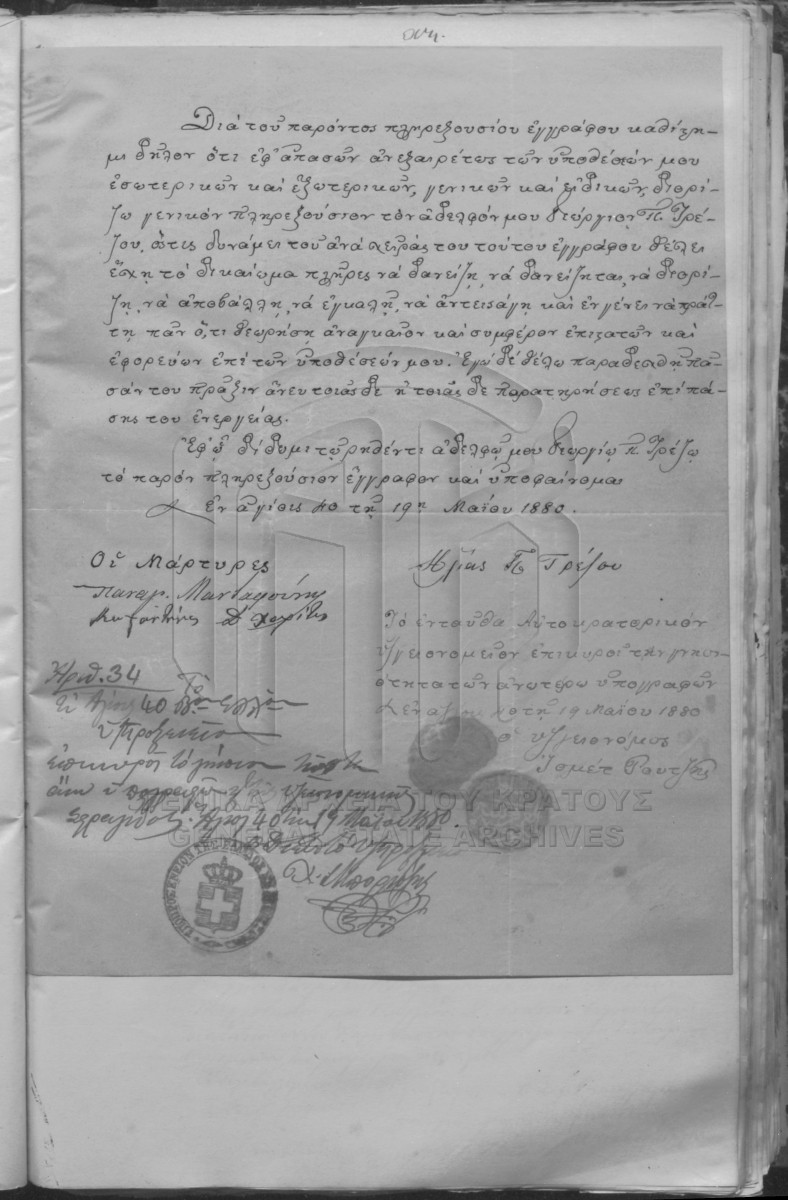 Διά τοῦ παρόντος πληρεξουσίου ἐγγράφου καθίστη-
μι δῆλον ὅτι ἐφ' ἁπασῶν ἀνεξαιρέτως τῶν ὑποθέσεών μου
ἐσωτερικῶν καὶ ἐξωτερικῶν, γενικῶν καὶ εἰδικῶν, διορί-
ζω γενικόν πληρεξούσιον τὸν ἀδελφόν μου Γεώργιον Π. Γρέ-
ζου, ὅστις δυνάμει τοῦ ἀνά χεῖράς του τούτου ἐγγράφου θέλει
ἔχῃ τὸ δικαίωμα πλῆρες νὰ δανείζῃ, νὰ δανείζηται, νὰ διορί-
ζῃ, νὰ ἀποβάλλῃ, νὰ ἐγκαλῇ, νὰ ἀντεισάγῃ καὶ ἐν γένει νὰ πράτ-
τῃ πᾶν ὅ,τι θεωρήσῃ ἀναγκαῖον καὶ συμφέρον ἐπιστατῶν καὶ
ἐφορεύων ἐπὶ τῶν ὑποθέσεών μου. Ἐγώ δέ θέλω παραδεχθῆ πᾶ-
σάν του πρᾶξιν ἄνευ τοιᾶς δε ἢ τοιᾶς δε παρατηρήσεως ἐπὶ πά-
σης του ἐνεργείας.
Ἐφ' ᾧ δίδυμι τῷ ρηθέντι ἀδελφῷ μου Γεωργίῳ Π. Γρέζῳ
τὸ παρόν πληρεξούσιον ἔγγραφον καὶ ὑποφαίνομαι
Ἐν Ἁγίοις 40 τῇ 19ῃ Μαΐου 1880.
Οἱ Μάρτυρες
Ἠλίας Π. Γρέζου
Παναγ.
Κωσταντῖνος Δ.
Τὸ ἐνταῦθα Αὐτοκρατορικόν
ὑγειονομεῖον ἐπικυροῖ τὴν γνησι-
ότητα τῶν ἀνωτέρω ὑπογραφῶν
Ἐν Ἁγ. 40 τῇ 19 Μαΐου 1880
ὁ ὑγειονόμος
Ἰσμέτ
Ἀριθ. 34
Τὸ ἐν Ἁγίοις 40
Ὑποπροξενεῖον
Ἅγιοι 40 τὴν 19 Μαΐου 1880.
ΓΕΝΙΚΑ ΑΡΧΕΙΑ ΤΟΥ ΚΡΑΤΟΥΣ
GENERAL STATE ARCHIVES